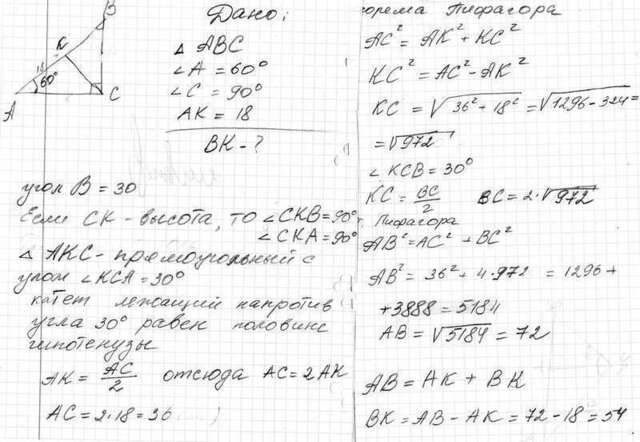 B
K
18
60°
A
C
Дано:
△ ABC
∠A = 60°
∠C = 90°
AK = 18
BK - ?
угол B = 30
Если CK - высота, то ∠CKB = 90°
∠CKA = 90°
△ AKC - прямоугольный с
углом ∠KCA = 30°
катет лежащий напротив
угла 30° равен половине
гипотенузы
AK = AC/2 отсюда AC = 2AK
AC = 2·18 = 36
орема Пифагора
AC² = AK² + KC²
KC² = AC² - AK²
KC = √36² + 18² = √1296 - 324 =
= √972
∠ KCB = 30°
KC = BC/2 BC = 2·√972
т Пифагора
AB² = AC² + BC²
AB² = 36² + 4·972 = 1296 +
+ 3888 = 5184
AB = √5184 = 72
AB = AK + BK
BK = AB - AK = 72 - 18 = 54